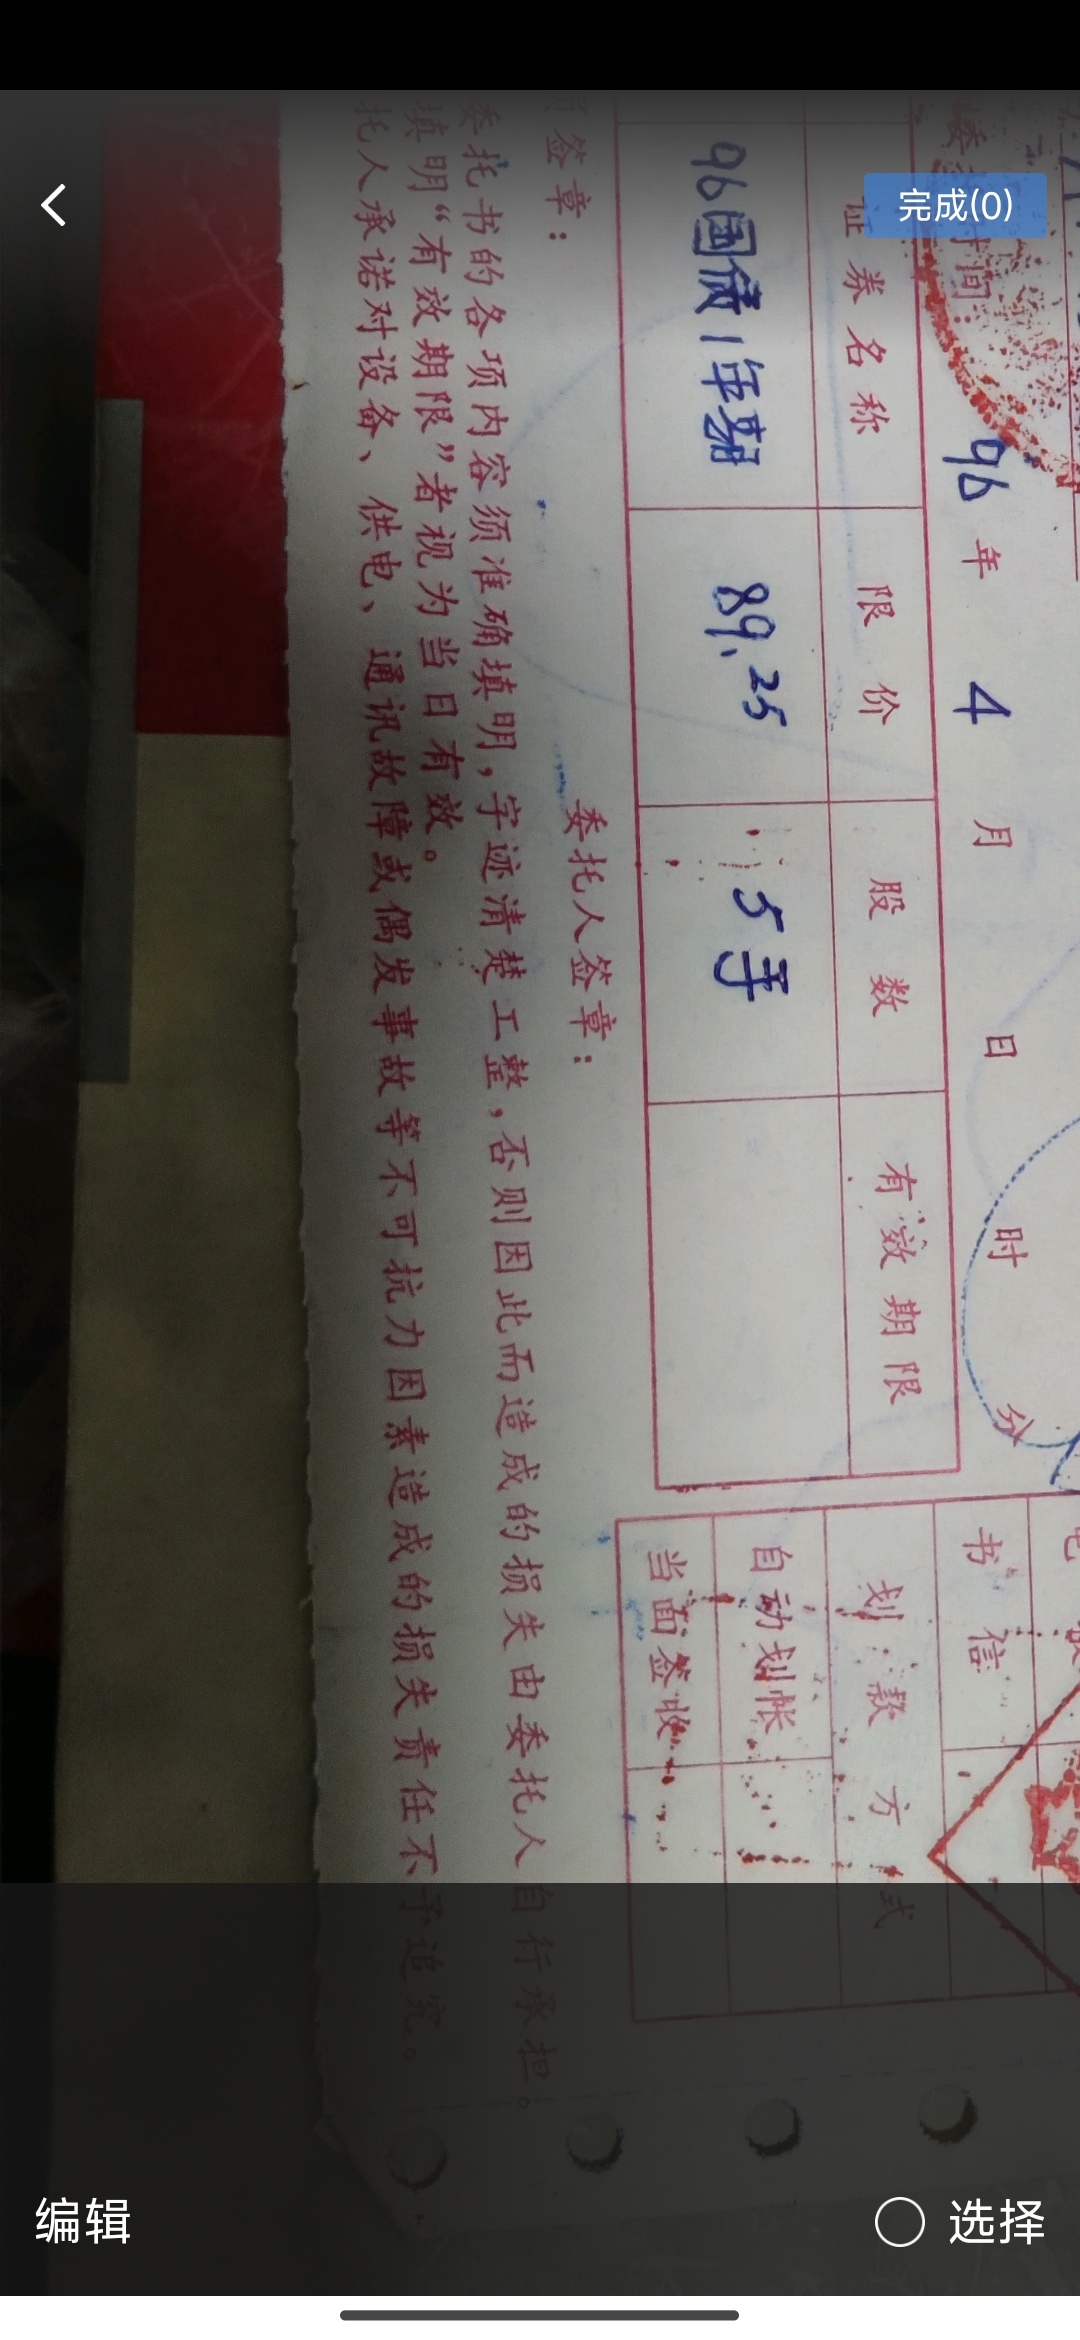 完成(0)
委托时间： 96 年 4 月 日 时 分
证券名称 限价 股数 有效期限
96国债1年期 89.25 5手
签章： 委托人签章：
委托书的各项内容须准确填明，字迹清楚工整，否则因此而造成的损失由委托人自行承担。
填明“有效期限”者视为当日有效。
托人承诺对设备、供电、通讯故障或偶发事故等不可抗力因素造成的损失责任不予追究。
书信
划款方式
自动划帐
当面签收
编辑
选择